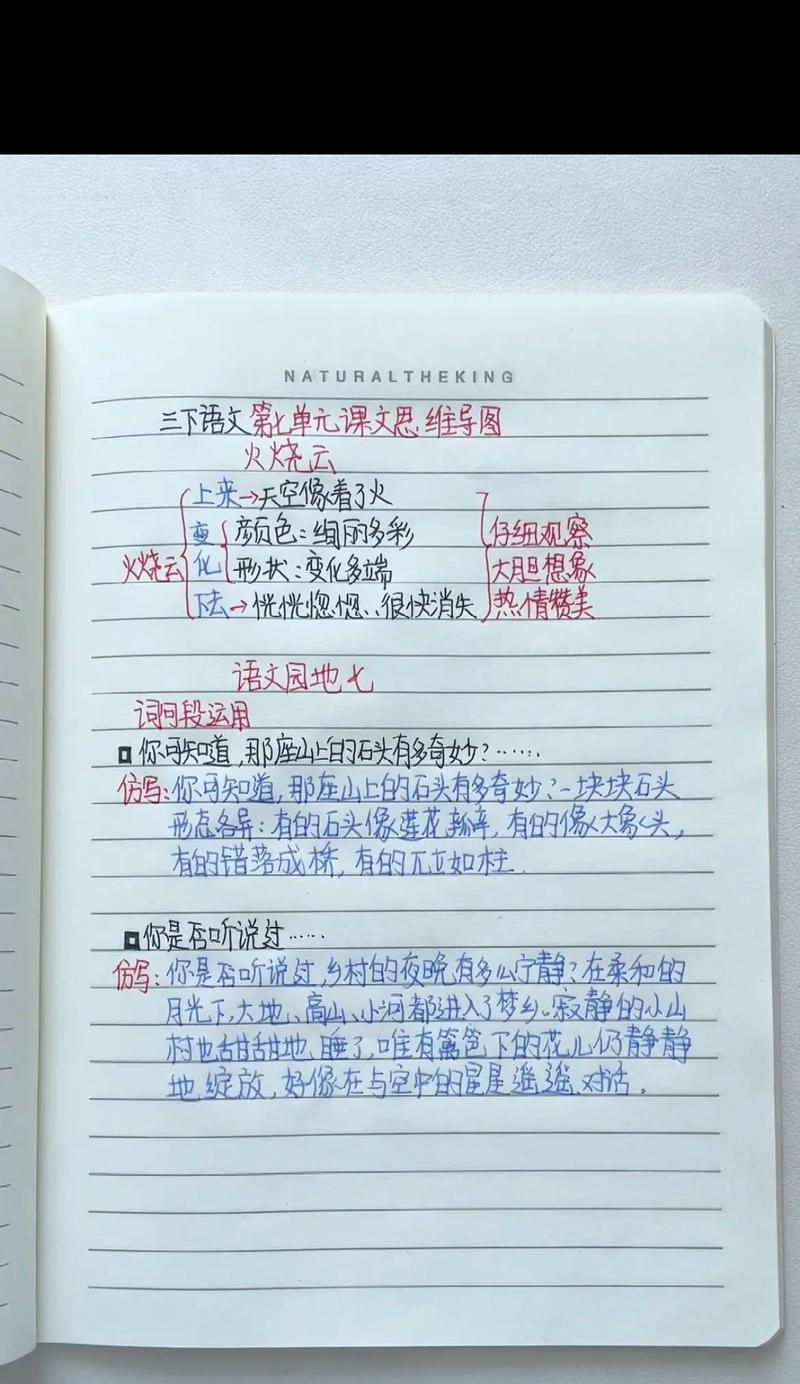 NATURALTHEKING
三下语文第七单元课文思维导图
火烧云
上来→天空像着了火
变 颜色:绚丽多彩 仔细观察
火烧云 化 形状:变化多端 大胆想象
下去→恍恍惚惚、很快消失 热情赞美
语文园地七
词句段运用
你可知道,那座山上的石头有多奇妙?……
仿写:你可知道,那座山上的石头有多奇妙?一块块石头
形态各异:有的石头像莲花瓣,有的像大象头,
有的错落成桥,有的兀立如柱.
你是否听说过……
仿写:你是否听说过,乡村的夜晚有多么宁静?在柔和的
月光下,大地、高山、小河都进入了梦乡。寂静的小山
村也甜甜地睡了,唯有篱笆下的花儿仍静静
地绽放,好像在与空中的星星遥遥对话.